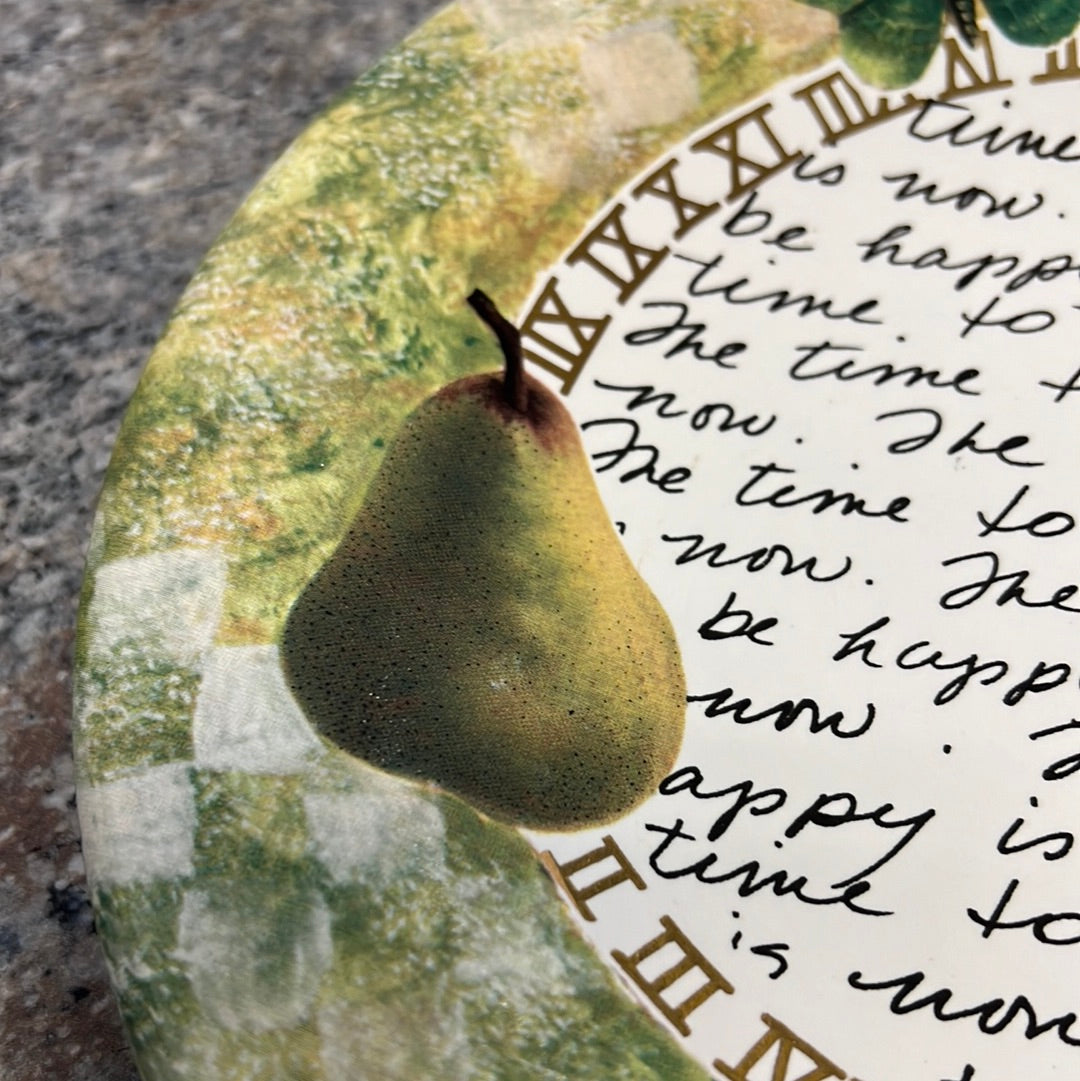 time
is now.
be happy
time to
The time t
now. The
The time to
now. The
be happy
now.
appy is
time to
is now
XI
X
IX
II
III
IV